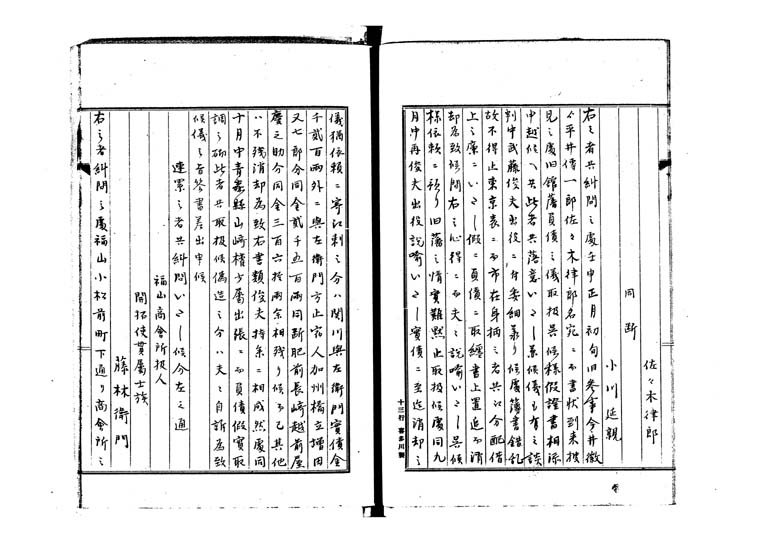 佐々木律郎
同断
小川廷親
右之者共糾問之處壬申正月初旬旧参事今井徹
ゟ平井偆一郎佐々木律郎名宛ニ而書状到来披
見之處旧館藩負債之儀取扱呉候様假證書相添
申越候ヘ共此者共落意いたし兼候儀も有之談
判中武藤俊夫出役ニ付委細承り候處簿書錯乱
故不得止東京表ニ而市在身柄之者共江分配借
上之廉ニいたし假ニ負債ニ取纏書上置追而消
却為致候間右之心得ニ而夫々説喩いたし呉候
様依頼ニ預り旧藩之情實難黙止取扱候處同九
月中再俊夫出役説喩いたし實債ニ至迄消却之
十三行 喜多川製
儀猶依頼ニ寄江刺之分ハ関川與左衛門實債金
千貳百両外ニ與左衛門方止宿人加州橋立増田
又七郎分同金貳千五百両同断肥前長崎越前屋
慶之助分同金三百六拾両余相残り候而已其他
ハ不残消却為致右書類俊夫持参ニ相成然處同
十月中青森縣山崎横少属出張ニ而負債假實取
調之砌此者共取扱候偽造之分ハ夫々自訴為致
候儀之旨答書差出申候
連累之者共糾問いたし候分左之通
福山商會所扱人
開拓使貫属士族
藤林衛門
右之者糾問之處福山小松前町下通り商會所之